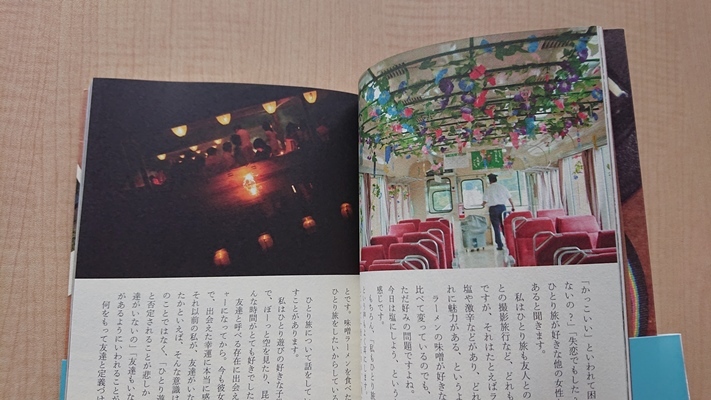 「かっこいい」といわれて困
ないの?」「失恋でもした
ひとり旅が好きな他の女性
あると聞きます。
私はひとり旅も友人との
との撮影旅行など、どれも
ですが、それはたとえばラ
塩や激辛などがあり、どれ
れに魅力がある、というよ
ラーメンの味噌が好きな
比べて変っているのでも、
ただ好みの問題ですよね。
今日は塩にしよう、という
感じです。
もちろん、「私もひとり旅
とです。味噌ラーメンを食べた
ひとり旅をしたいからしている
ひとり旅について話をして
すことがあります。
私はひとり遊びの好きな子
で、ぼーっと空を見たり、昆
んな時間がとても好きでした
友達と呼べる存在に出会え
ォーになってから。今も彼女
で、出会えた幸運に本当に感
それ以前の私が、友達がいな
たかといえば、そんな意識は
のことではなく、「ひとり遊
と否定されることが悲しか
達がいないの」「友達もいな
があるようにいわれることが
何をもって友達と定義づけ